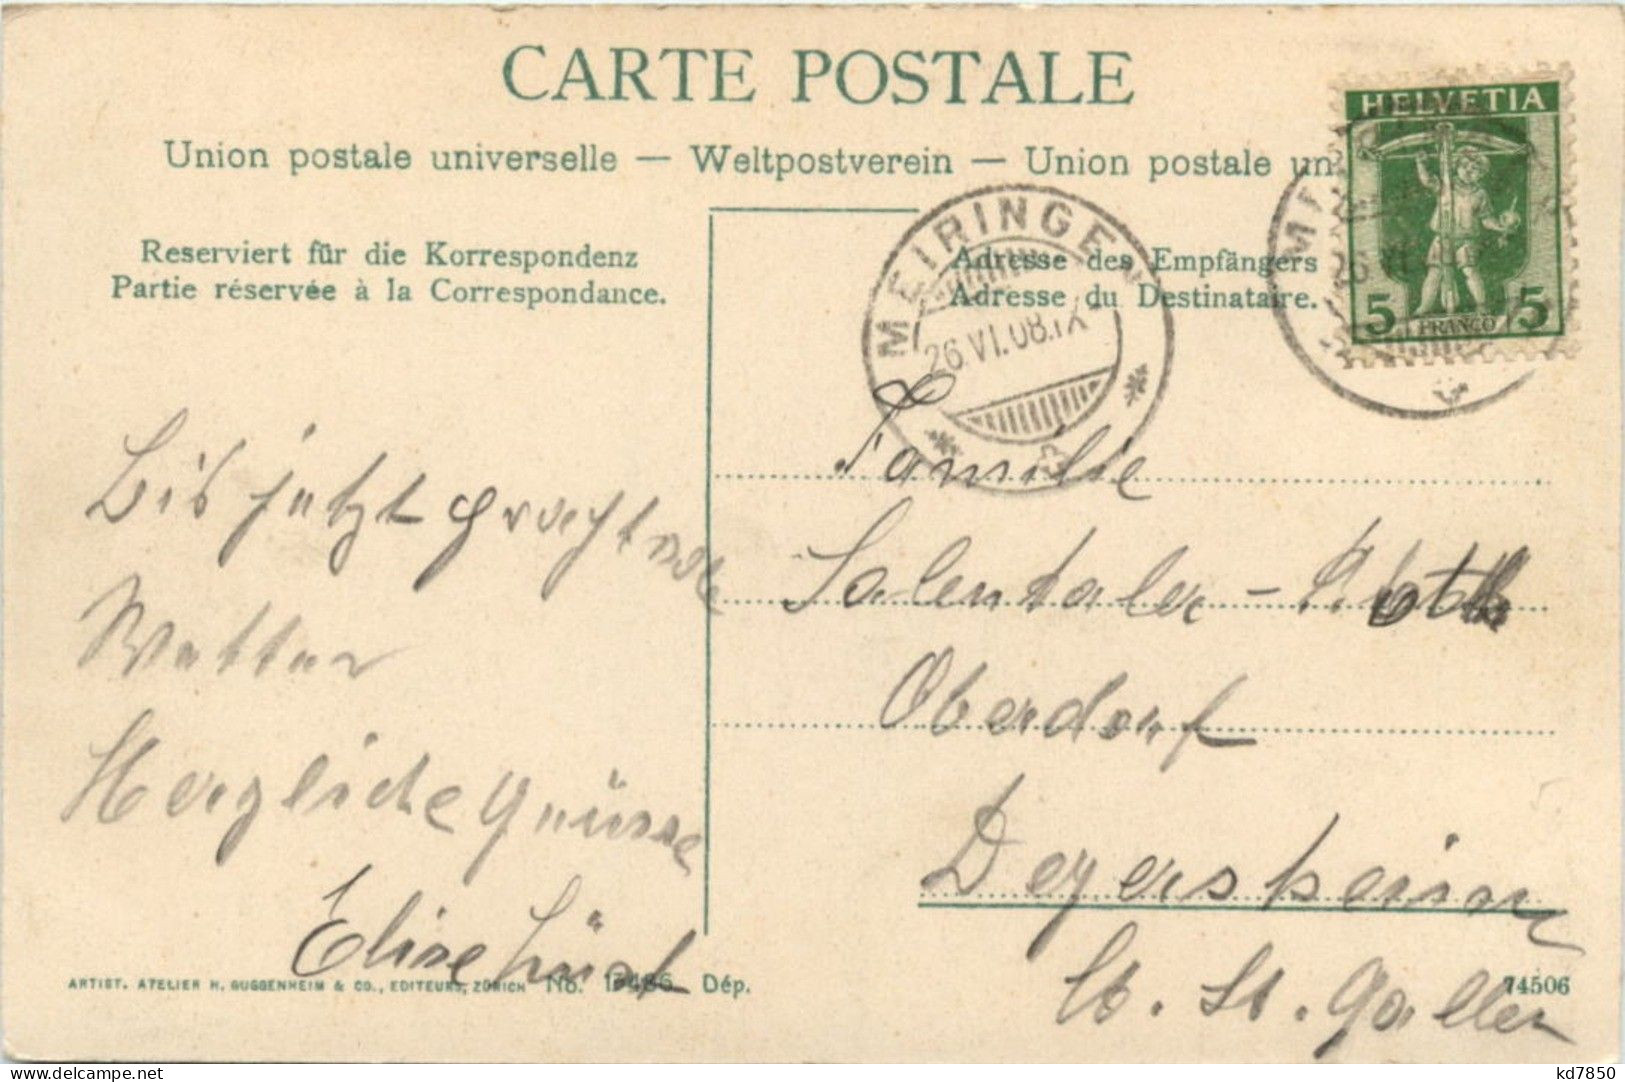 CARTE POSTALE
Union postale universelle — Weltpostverein — Union postale un
Reserviert für die Korrespondenz
Partie réservée à la Correspondance.
Adresse des Empfängers
Adresse du Destinataire.
HELVETIA
5 FRANCO 5
MEIRINGEN
26.VI.08.IX
Bis jetzt prachtvolle
Wetter
Herzliche Grüsse
Elise
Familie
Oberdorf
Degersheim
Ct. St. Gallen
ARTIST. ATELIER H. GUGGENHEIM & CO., EDITEURS, ZÜRICH No. 13486 Dép.
74506
delcampe.net
kd7850